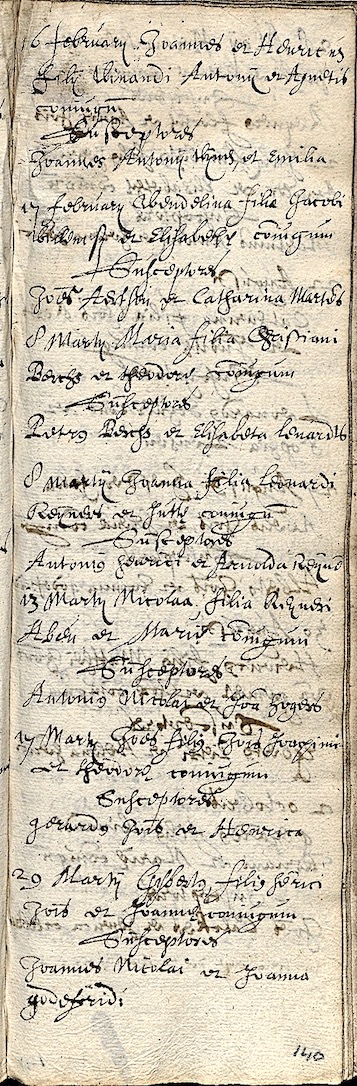 6 february Joannes et Henricus
filij Winandi Antonij et Agnetis
coniugum
Susceptores
Joannes Antonij et Emilia
17 february Wendelina filia Jacobi
et Elisabeth coniugum
Susceptores
Joes et Catharina Martens
8 Martij Maria filia Christiani
Berchs et theodore coniugum
Susceptores
Petrus Berchs et Elisabeta lenardts
8 Martij Joanna filia Leonardi
Reyners et Jutte coniugu
Susceptores
Antonius henrici et Arnolda
13 Martij Nicolaa filia Reyneri
Aben et Marie coniugum
Susceptores
Antonius Nicolai et Joa
17 Martij Joes filius Jois
et theodore coniugum
Susceptores
gerardus Jois et Henrica
29 Martij Gysbertus filius henrici
Jois et Joanne coniugum
Susceptores
Joannes Nicolai et Joanna
godefridi
140